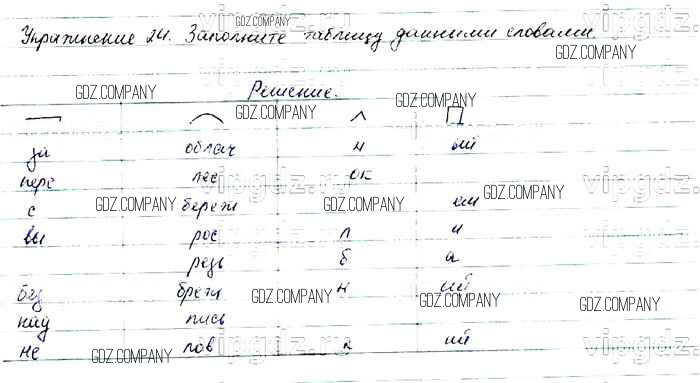 Упражнение 24. Заполните таблицу данными словами.
Решение.
за облач н ый
пере лес ок
с береж ем
вы рос л и
резь б а
без брежн н ий
над пись
не лов к ий
vipgdz.ru
GDZ.COMPANY